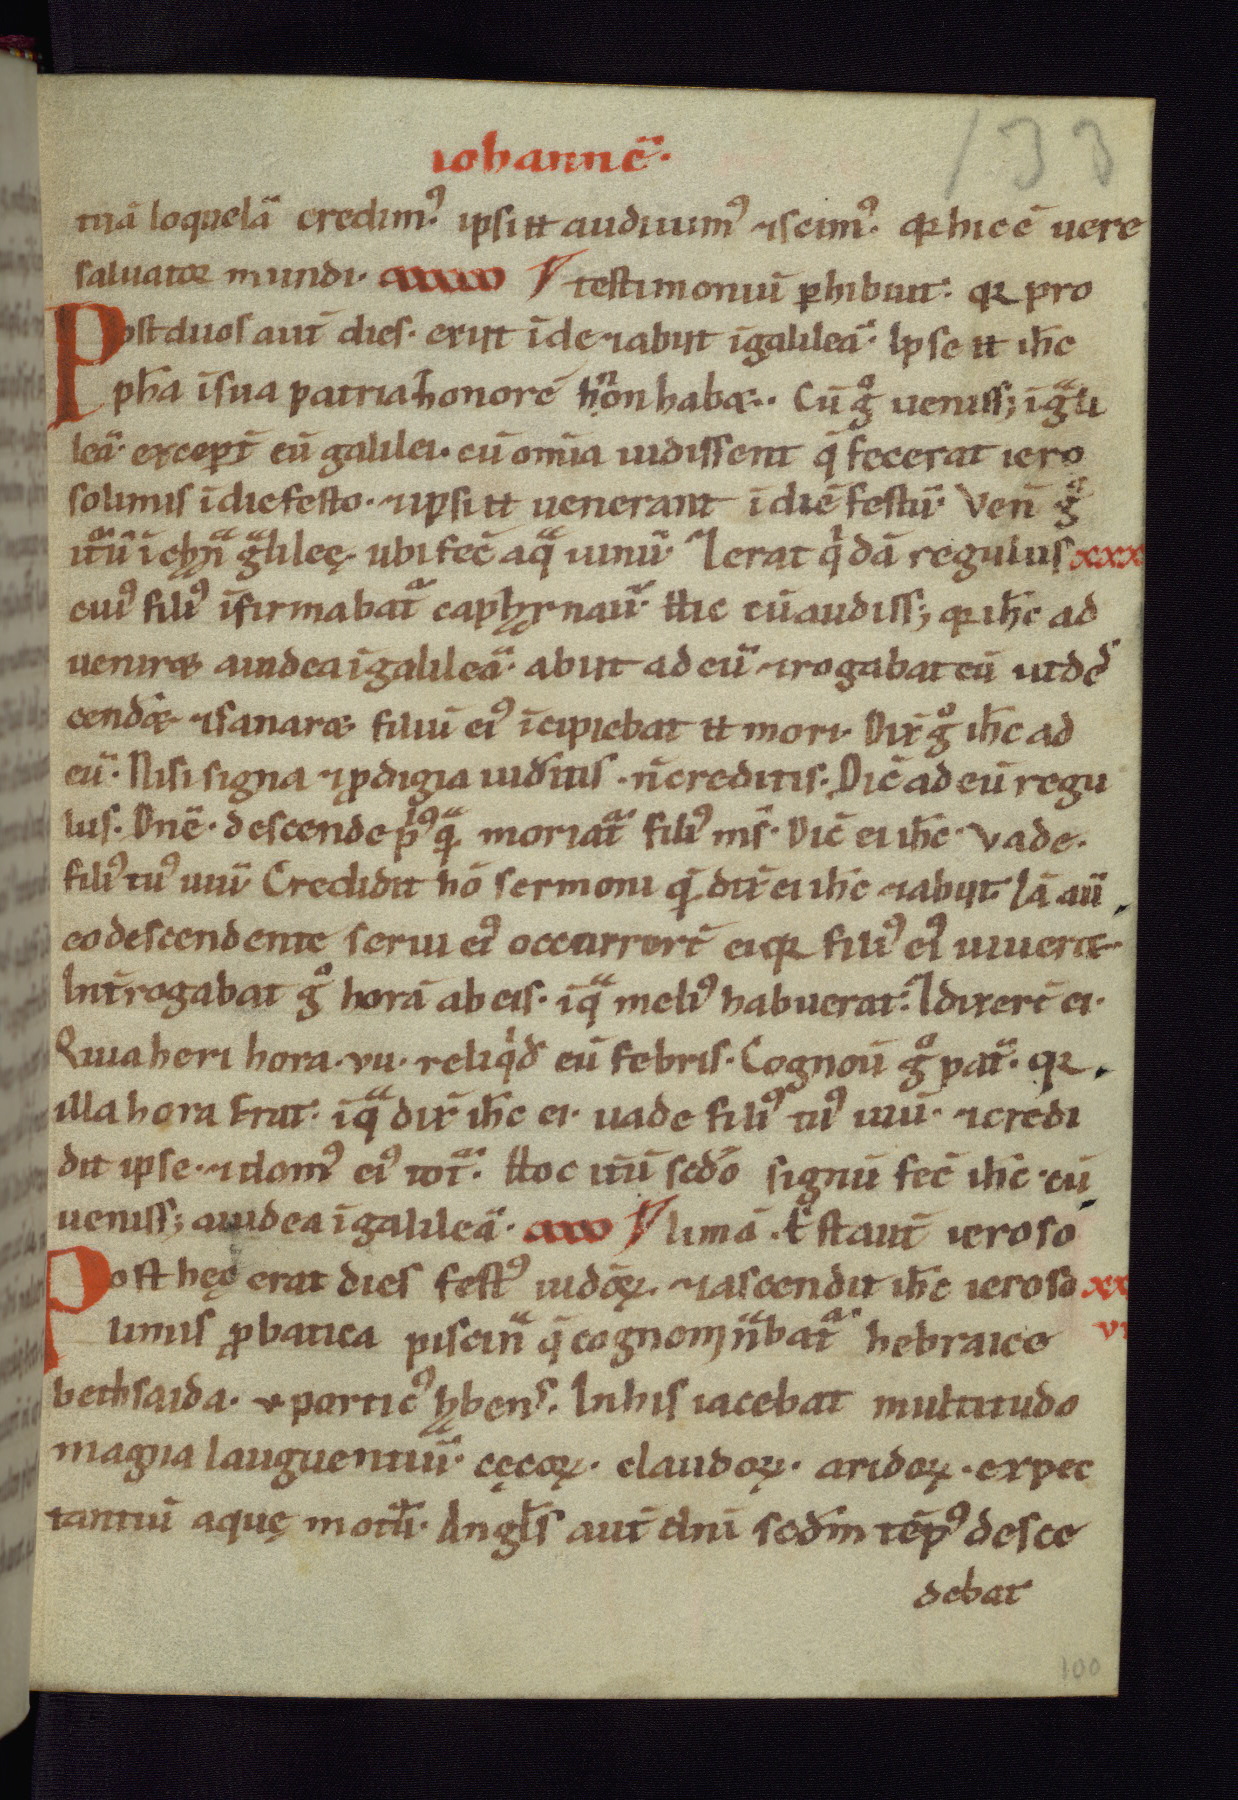 133
iohannē·
tuā loquelā credimꝰ· ipsi tt audiuimꝰ ⁊scimꝰ· qꝛ hic ē uere
saluatoꝛ mundi· testimoniū ꝑhibuit· qꝛ pro
Post duos aut̄ dies· exiit īde ⁊abiit ī galileā· Ipse tt ih̄c
ph̄a ī sua patria honorē n̄ habæ·· Cū gͦ uenisse; ī gͣli
leā· excepert̄ eū galilei· cū om̄ia uidissent q̄ fecerat iero
solimis ī die festo· ⁊ipsi tt uenerant ī diē festū· Ven̄ gͦ
it̄ū ī chn̄ gͣlileę· ubi fec̄ aqͣ uinū· ⁊erat qͥdā regulus xxx
cuiꝰ filiꝰ īfirmabat̄ capħrnaū· Hic cū audiss; qꝛ ih̄c ad
ueniræ a iudea ī galileā· abiit ad eū ⁊rogabat eū ut des
cendæ· ⁊sanaræ filiū eiꝰ īcipiebat tt mori· Dix̄ gͦ ih̄c ad
eū· Nisi signa ⁊ꝓdigia uidītis· n̄ creditis· Dic̄ ad eū regu
lus· Dn̄e· descende pͥꝰqͣ moriat̄ filiꝰ mꝰs· Dic̄ ei ih̄c· Vade·
filiꝰ tuꝰ uiū· Credidit hō sermoni q̄ dix̄ ei ih̄c ⁊abiit· Iā aū
eo descendente serui eiꝰ occurrert̄ ei qꝛ filiꝰ eiꝰ uiueræ·
Int̄rogabat gͦ horā ab eis· ī qͣ meliꝰ habuerat· ⁊dixert̄ ei·
Quia heri hora· vii· reliqͥd eū febris· Cognoū gͦ pat̄· qꝛ
illa hora erat· ī qͣ dix̄ ih̄c ei· uade filiꝰ tuꝰ uiū· ⁊credi
dit ipse· ⁊domꝰ eiꝰ totͣ· Hoc it̄ū sedō signū fec̄ ih̄c· cū
ueniss; a iudea ī galileā· limā· ē st aut̄ ieroso
Post hęc erat dies festꝰ iudōꝝ· ⁊ascendit ih̄c ieroso xx
limis ꝓbatica piscinͣ q̄ cognominͣbat̄ hebraice vi
bethsaida· v porticꝰ ħbens· In his iacebat multitudo
magna languentiū· cęcoꝝ· claudoꝝ· aridoꝝ· expec
tantiū aquę motū· Angls̄ aut̄ dn̄i sedm̄ tēpꝰ desce
debat
100